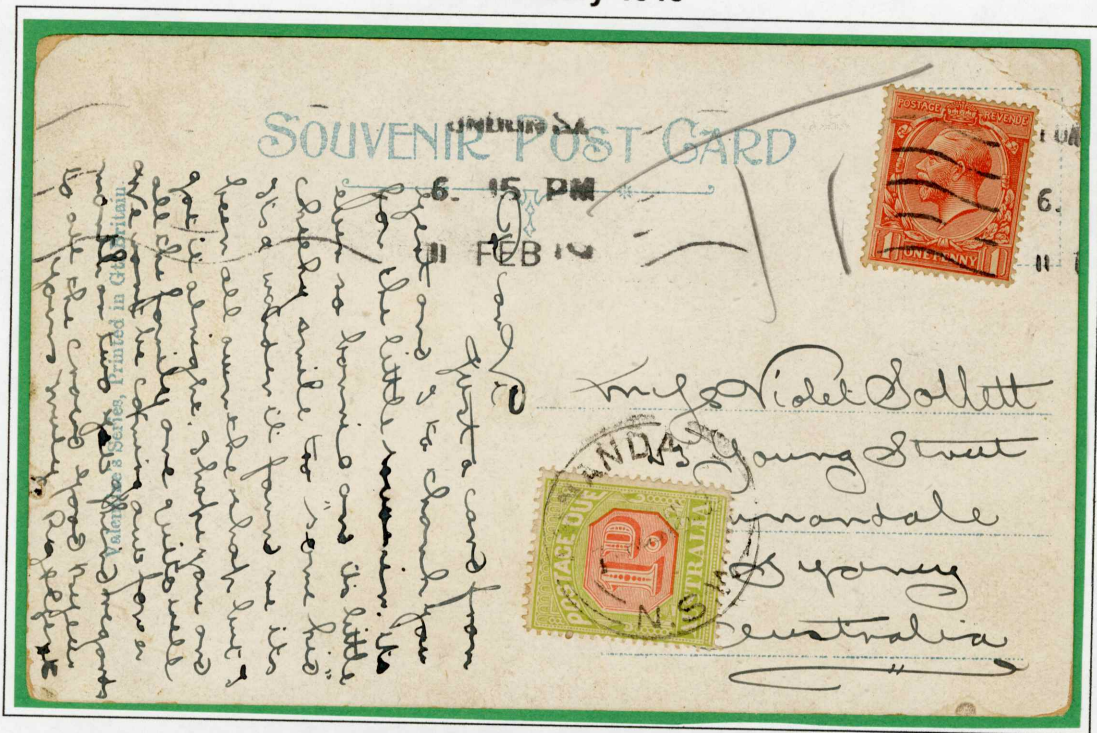 SOUVENIR POST CARD
6. 15 PM
11 FEB
POSTAGE REVENUE
1 ONE PENNY 1
6.
11
Miss Violet Sollett
Young Street
Annandale
Sydney
Australia
POSTAGE DUE
1D.
AUSTRALIA
ANNANDALE
N.S.W
Valentine's Series, Printed in Gt. Britain.
Just a card from
Geof and I to thank you
for the little souvenir. its
ever so bonnie and its little
cheeky smile too "some kid"
its a wonder it found me its
been all over the shop but I
got it alright. I hope you and
all the family are quite well
We may be coming out for a
to all the crowd good
yours